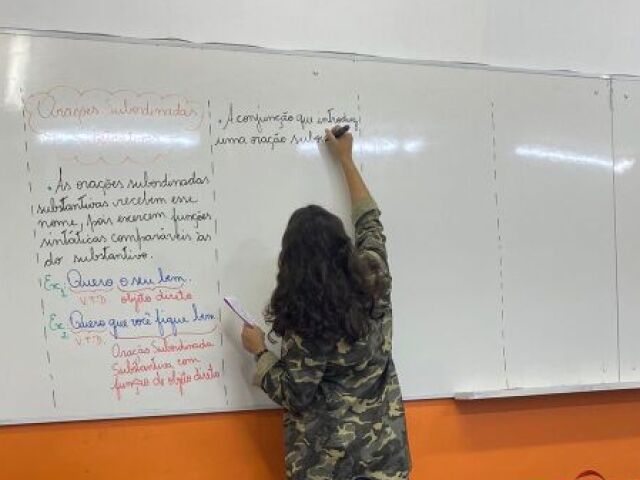 Orações Subordinadas
Substantivas
• As orações subordinadas
substantivas recebem esse
nome, pois exercem funções
sintáticas comparáveis às
do substantivo.
Ex1: Quero o seu bem.
V.T.D. objeto direto
Ex2: Quero que você fique bem
V.T.D.
Oração Subordinada
Substantiva com
função de objeto direto
• A conjunção que introduz
uma oração